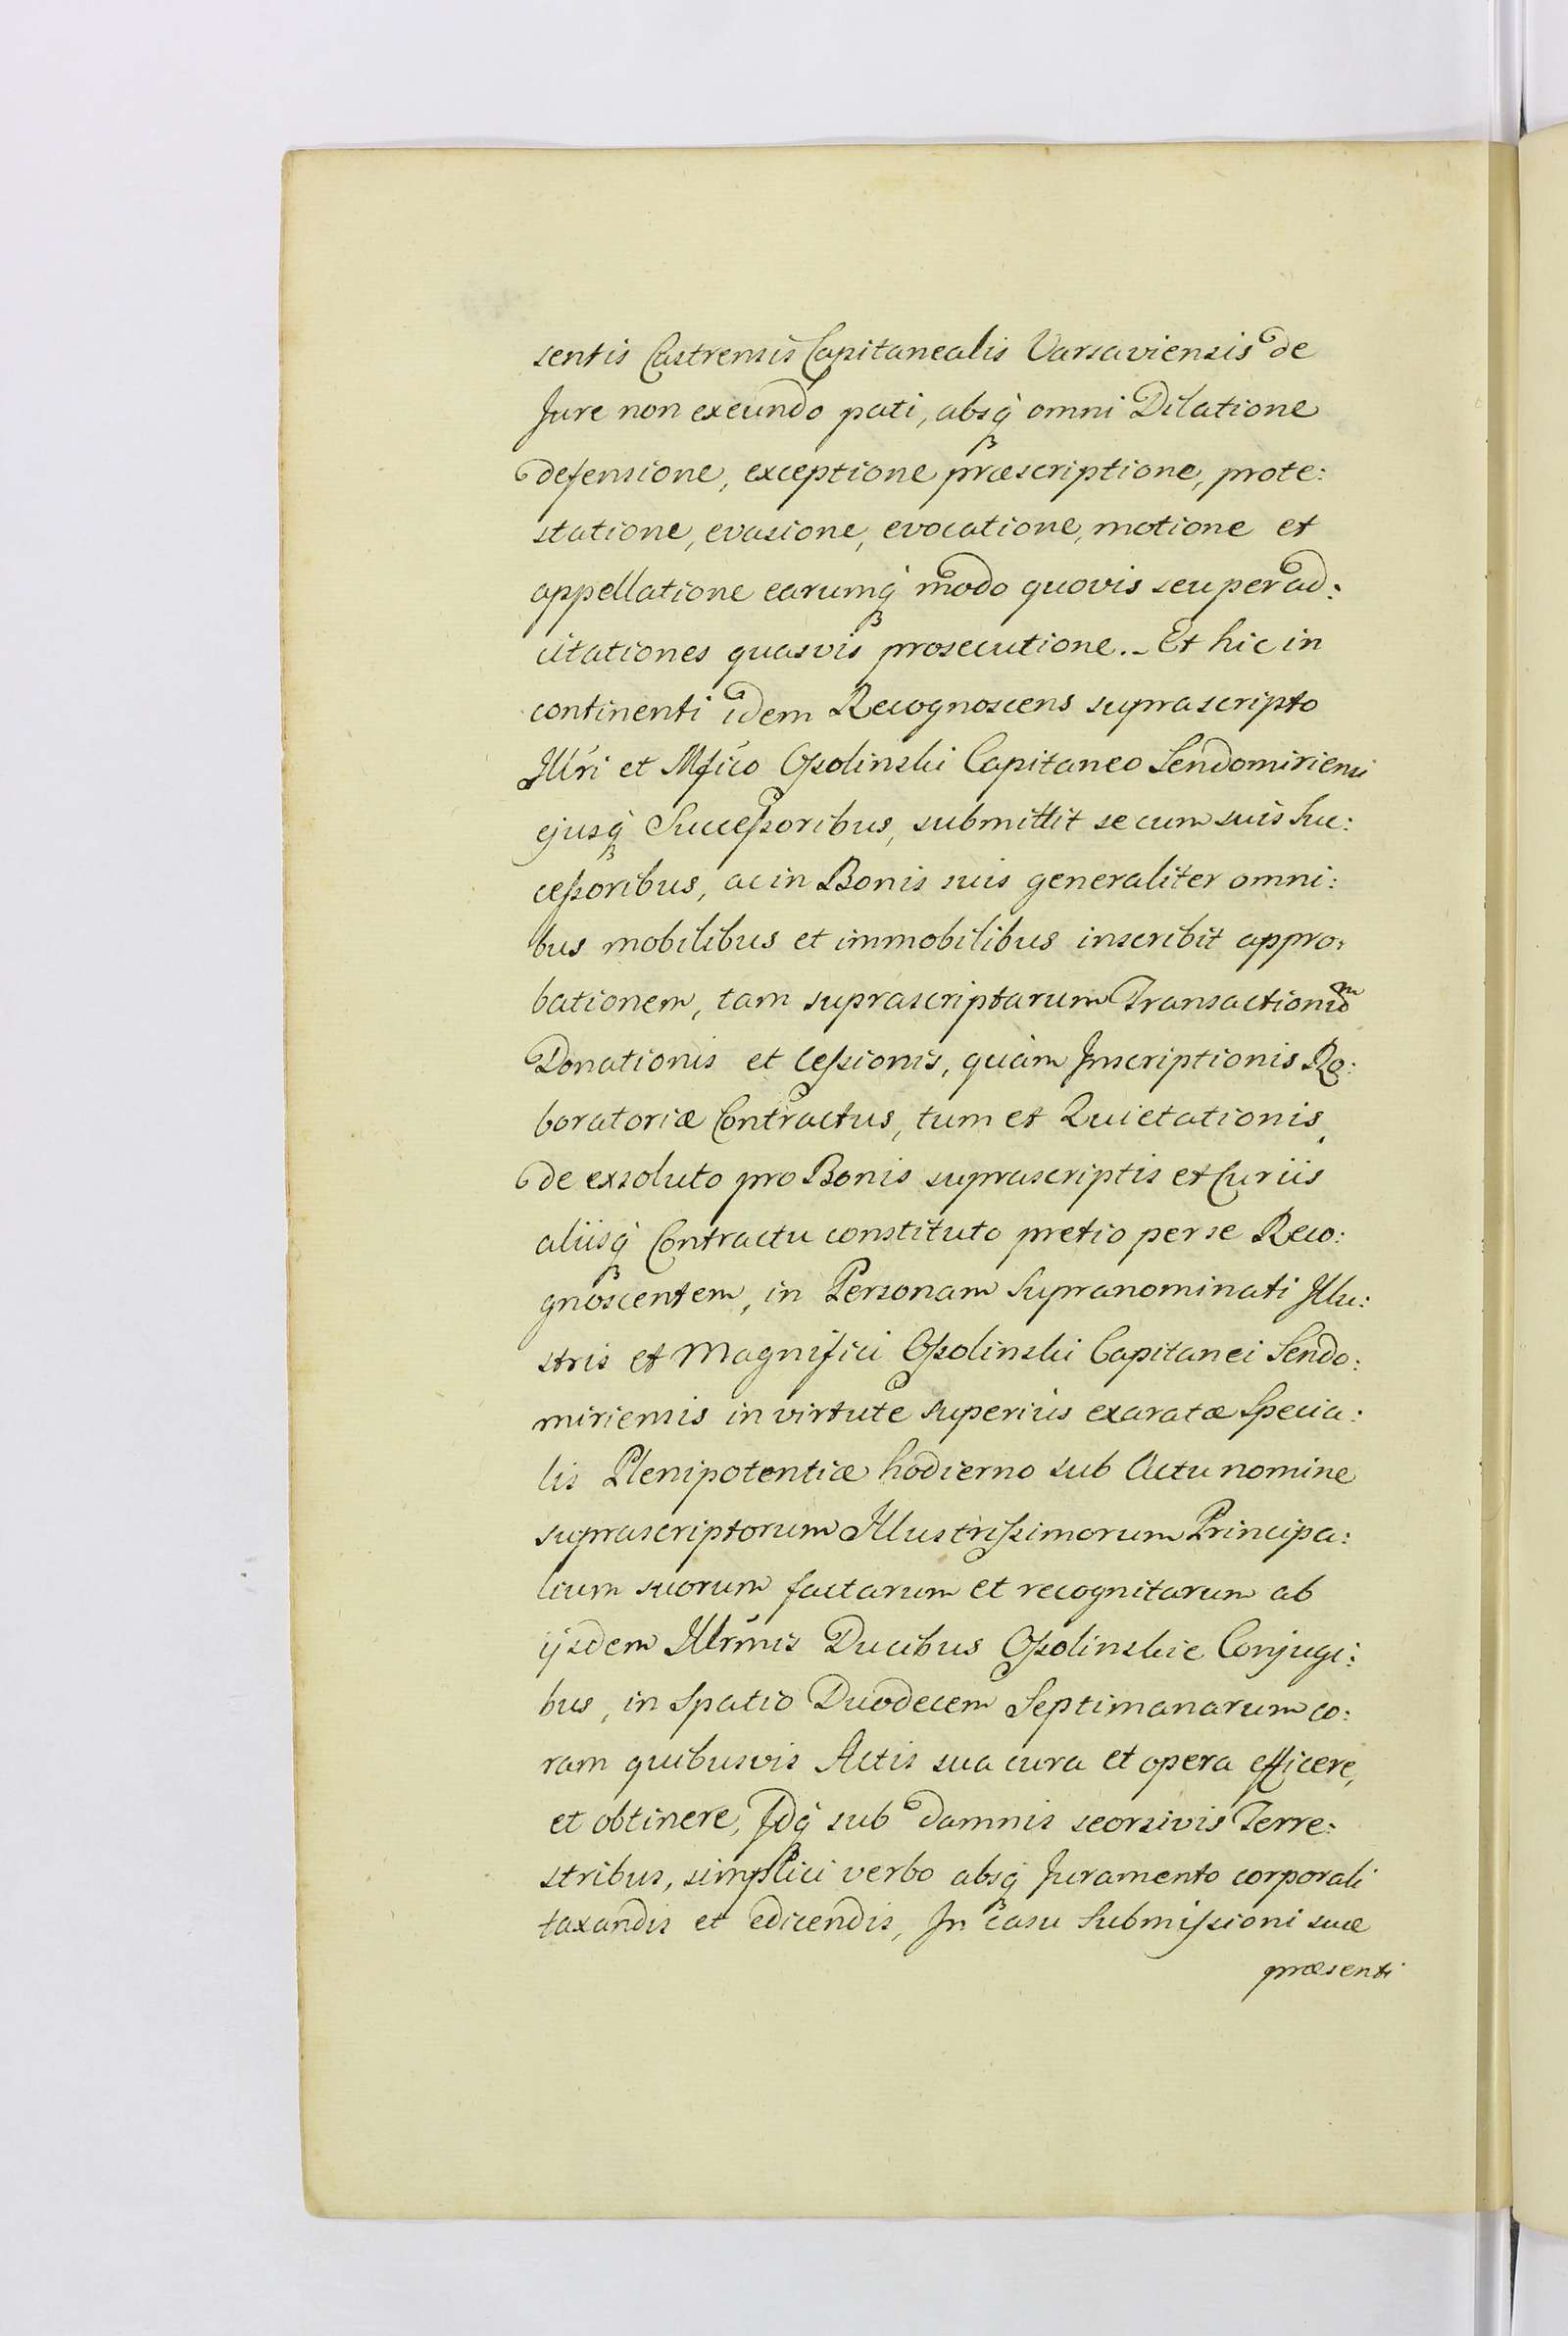 sentis Castrensis Capitanealis Varsaviensis de
Jure non exeundo pati, absq́ omni Dilatione
defensione, exceptione præscriptione, prote:
statione, evasione, evocatione, motione et
appellatione earumq́ modo quovis seu per ad:
citationes quasvis prosecutione._ Et hic in
continenti idem Recognoscens suprascripto
Illr̃i et Mfico Ossolinski Capitaneo Sendomiriensi
ejusq́ Successoribus, submittit se cum suis Suc:
cessoribus, ac in Bonis suis generaliter omni:
bus mobilibus et immobilibus inscribit appro:
bationem, tam suprascriptarum Transactionum
Donationis et Cessionis, quàm Inscriptionis Ro:
boratoriæ Contractus, tum et Quietationis,
de exsoluto pro Bonis suprascriptis et Curiis
aliisq́ Contractu constituto pretio per se Reco:
gnoscentem, in Personam Supranominati Illu:
stris et Magnifici Ossolinski Capitanei Sendo:
miriensis in virtute superius exaratæ Specia:
lis Plenipotentiæ hodierno sub Actu nomine
suprascriptorum Illustrissimorum Principa:
lium suorum factarum et recognitarum ab
ijsdem Illrm̃is Ducibus Ossolinskie Conjugi:
bus, in Spatio Duodecem Septimanarum co:
ram quibusvis Actis sua cura et opera efficere,
et obtinere, Idq́ sub damnis seorsivis Terre:
stribus, simplici verbo absq́ Juramento corporali
taxandis et edicendis, In casu Submissioni suæ
præsenti